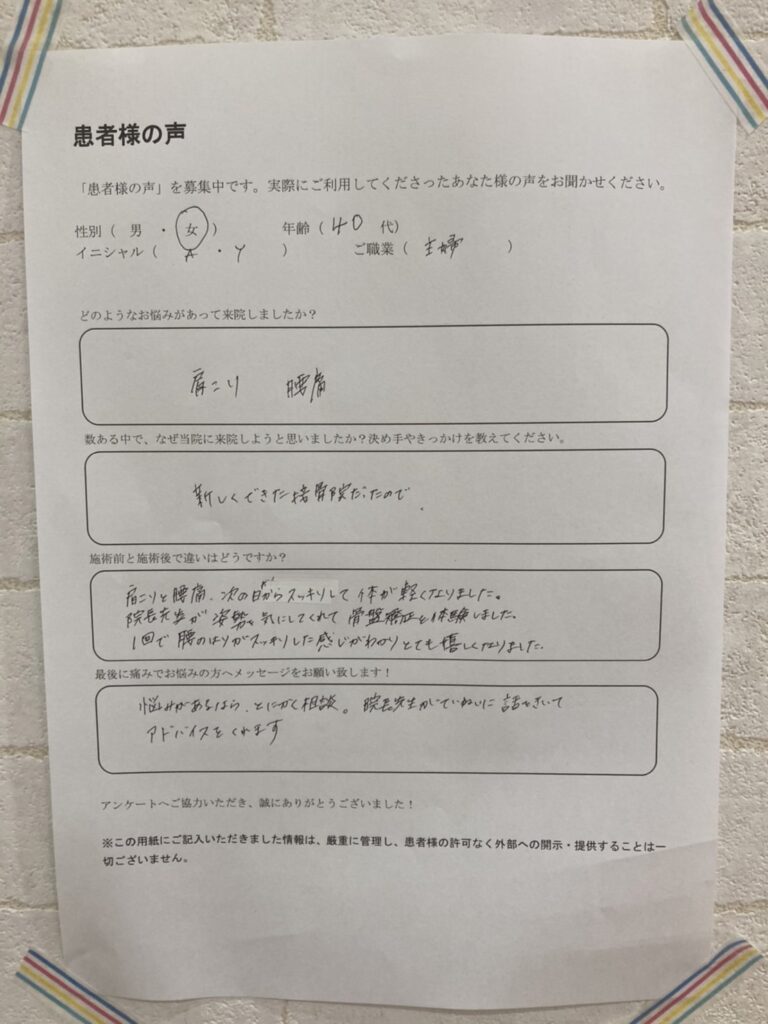 患者様の声
「患者様の声」を募集中です。実際にご利用してくださったあなた様の声をお聞かせください。
性別（ 男 ・ 女 ） 年齢（ 40 代）
イニシャル（ A ・ Y ） ご職業（ 主婦 ）
どのようなお悩みがあって来院しましたか？
肩こり 腰痛
数ある中で、なぜ当院に来院しようと思いましたか？決め手やきっかけを教えてください。
新しくできた接骨院だったので.
施術前と施術後で違いはどうですか？
肩こりと腰痛、次の日からスッキリして体が軽くなりました。
院長先生が姿勢を気にしてくれて骨盤矯正を体験しました。
1回で腰のはりがスッキリした感じがわかりとても嬉しくなりました.
最後に痛みでお悩みの方へメッセージをお願い致します！
悩みがあるなら、とにかく相談。院長先生がていねいに話をきいて
アドバイスをくれます
アンケートへご協力いただき、誠にありがとうございました！
※この用紙にご記入いただきました情報は、厳重に管理し、患者様の許可なく外部への開示・提供することは一
切ございません。